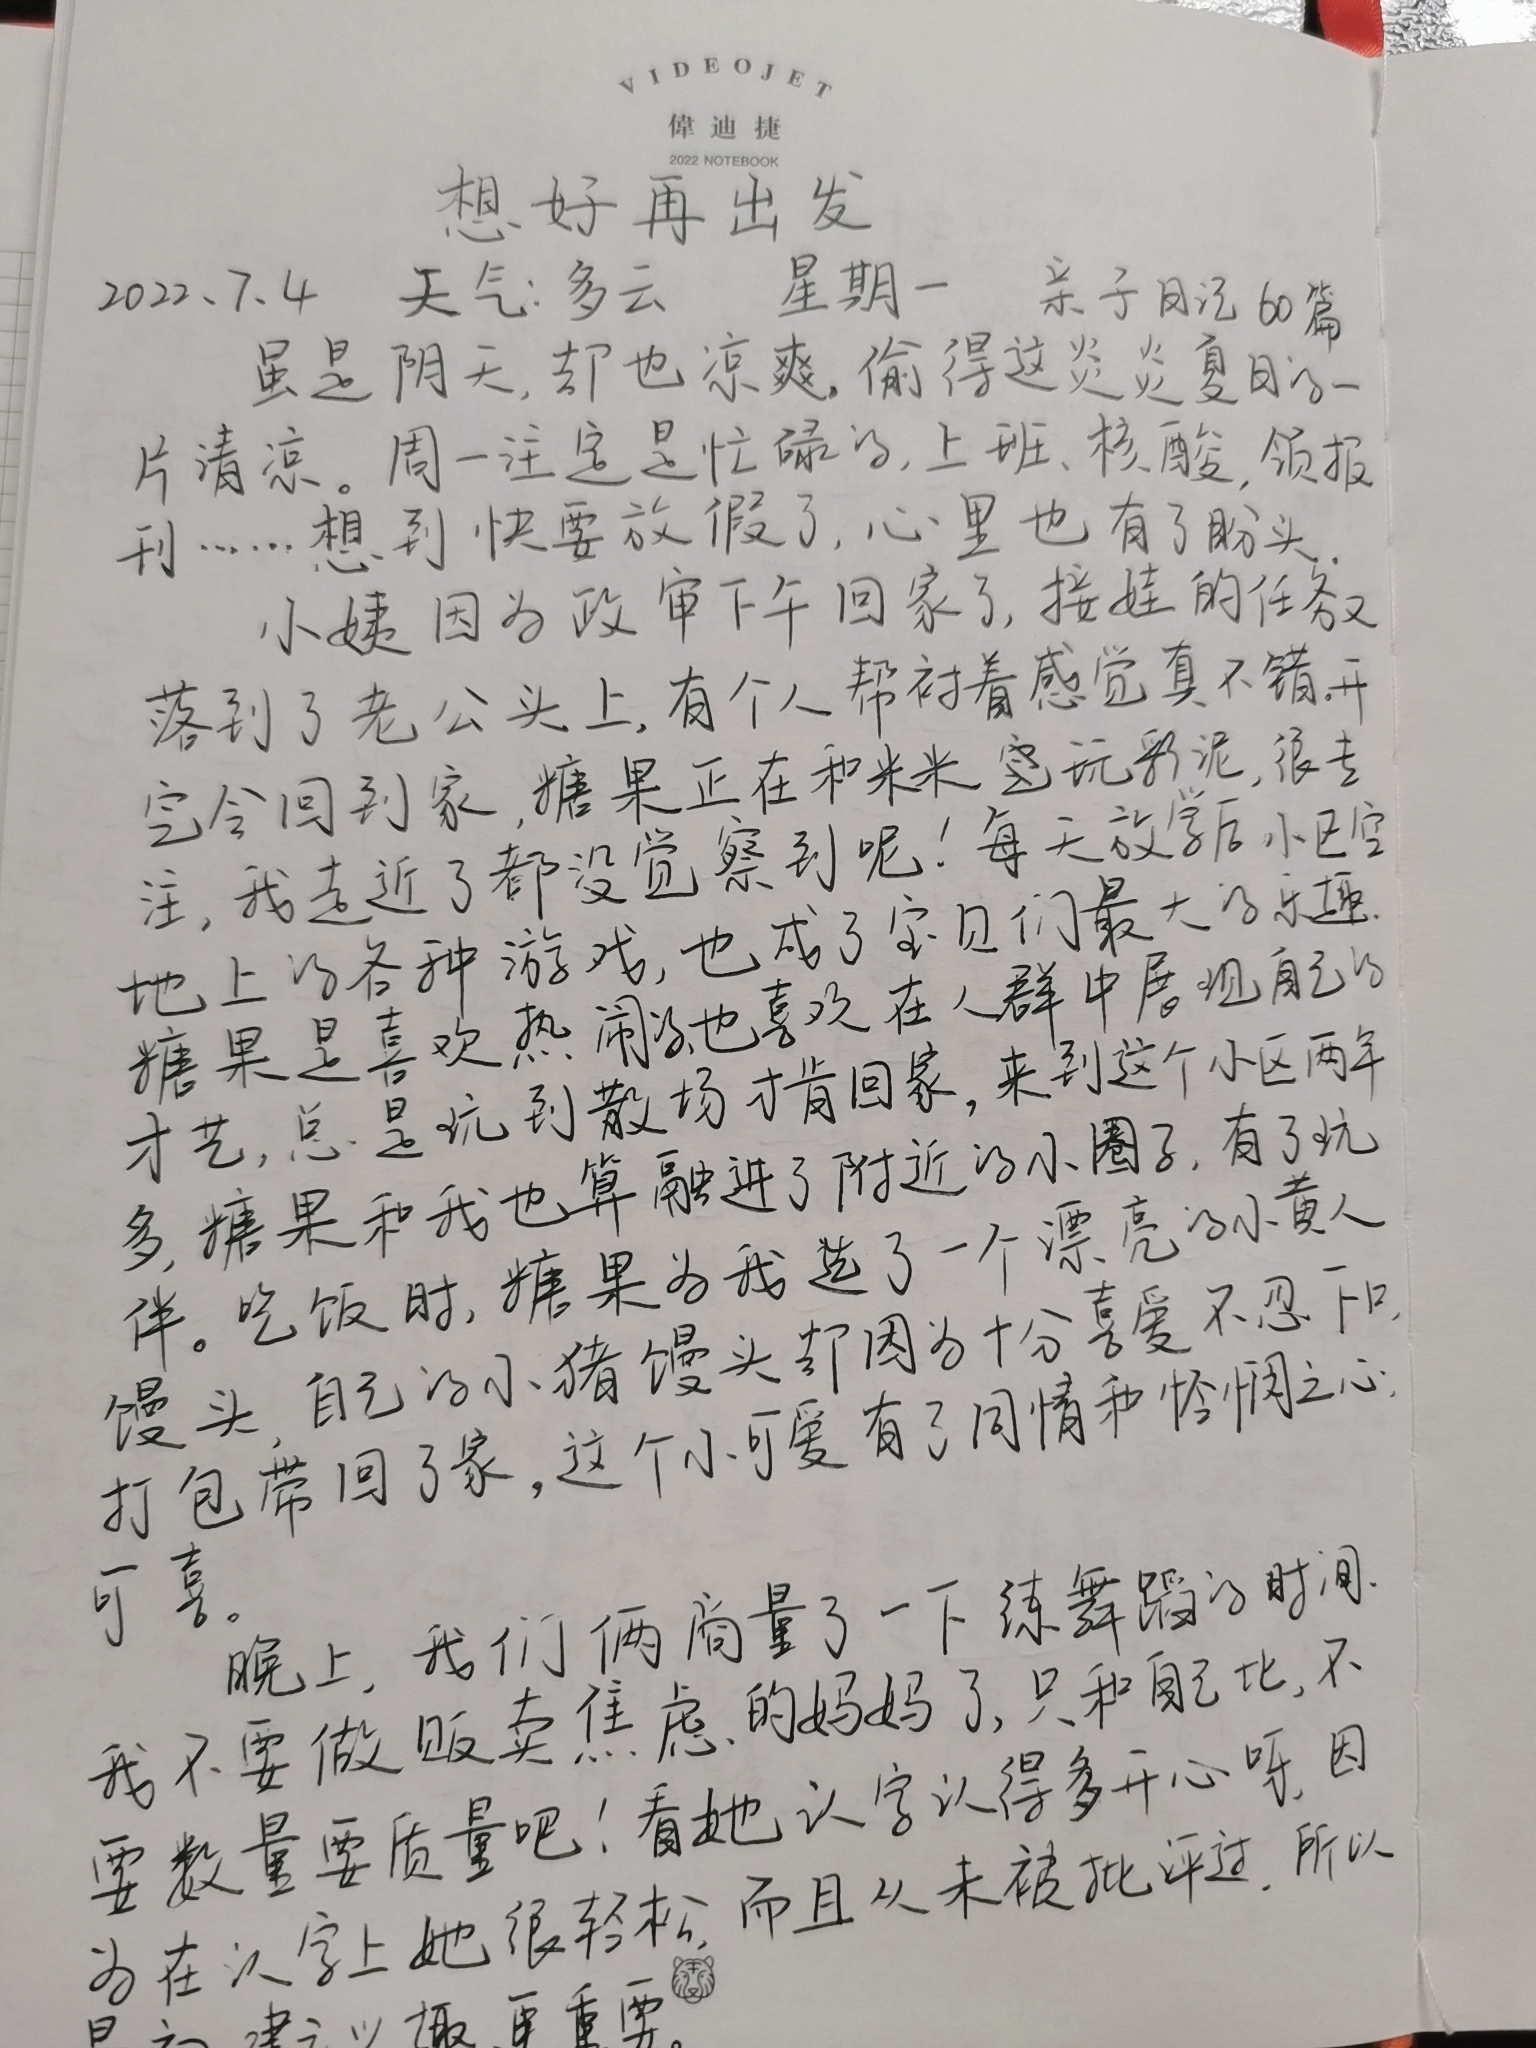 VIDEOJET
偉迪捷
2022 NOTEBOOK
想好再出发
2022、7、4 天气:多云 星期一 亲子日记60篇
虽是阴天,却也凉爽。偷得这炎炎夏日的一
片清凉。周一注定是忙碌的,上班、核酸,领报
刊……想到快要放假了,心里也有了盼头.
小姨因为政审下午回家了,接娃的任务又
落到了老公头上,有个人帮衬着感觉真不错.开
完会回到家,糖果正在和米米 玩彩泥,很专
注,我走近了都没觉察到呢!每天放学后小区空
地上的各种游戏,也成了宝贝们最大的乐趣.
糖果是喜欢热闹的,也喜欢在人群中展现自己的
才艺,总是玩到散场才肯回家,来到这个小区两年
多,糖果和我也算融进了附近的小圈子,有了玩
伴。吃饭时,糖果为我选了一个漂亮的小黄人
馒头,自己的小猪馒头却因为十分喜爱不忍下口,
打包带回了家,这个小可爱有了同情和怜悯之心,
可喜。
晚上,我们俩商量了一下练舞蹈的时间.
我不要做贩卖焦虑的妈妈了,只和自己比,不
要数量要质量吧!看她认字认得多开心呀,因
为在认字上她很轻松,而且从未被批评过.所以
趣更重要。